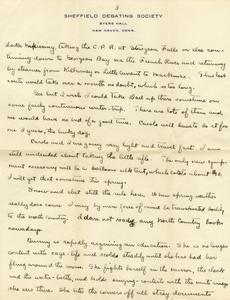 3
SHEFFIELD DEBATING SOCIETY
BYERS HALL
NEW HAVEN, CONN.
Lake Nipissing, taking the C.P.R. at Sturgeon Falls or else con-
tinuing down to Georgian Bay via the French River and returning
by steamer from Killarney or Little Current to . This last
route would take over a month no doubt, which is too long.
Gee but I wish I could take Dad up there sometime on
some fairly continuous water-trip. There are lots of them and
we would have no end of a good time. Carole will have to do it for
me I guess, the lucky dog.
Carole and I are going very light and travel fast. I am
still undecided about taking the little rifle. The only new equip-
ment necessary will be a balloon silk tent, which costs about $10.
I will get that sometime this spring.
I snow and slush still the rule here. When spring weather
really does come I may by mere force of mind be transported bodily
to the north country. I dare not read any North Country books
nowadays.
Quinny is rapidly acquiring an education. She is no longer
content with cage-life and scolds steadily until she has had her
fling around the room. She fights herself in the mirror, the clock
and the water-bottle, and holds conversations with the mute image
she sees there. She bites the corners off all stray documents